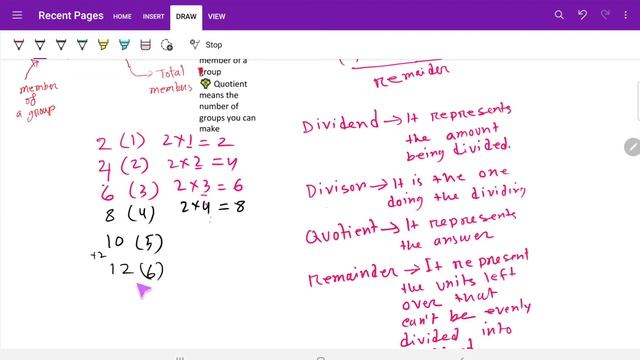 Recent Pages HOME INSERT DRAW VIEW
Stop
member of a
group
Quotient
means the
number of
groups you can
make
member
of
a group
Total
members
2 (1) 2×1=2
4 (2) 2×2=4
6 (3) 2×3=6
8 (4) 2×4=8
10 (5)
+2
12 (6)
Remaider
Dividend → It represents
the amount
being divided.
Divison → It is the one
doing the dividing
Quotient → It represents
the answer
Remainder → It represent
the units left
over that
can't be evenly
divided into